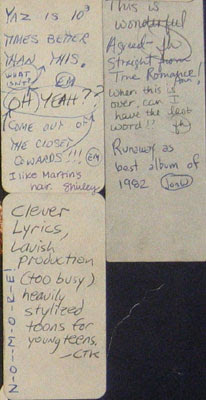 YAZ IS 10³
TIMES BETTER
THAN THIS.
WHAT
ISN'T
EM
OH YEAH??
COME OUT OF
THE CLOSET
COWARDS!!! EM
I like Martin's
hair. Shirley
This is
wonderful
Agreed-
Straight from
True Romance!
When this is
over, can I
have the last
word!!
Runaway as
best album of
1982 Jon W
Clever
Lyrics,
Lavish
production
(too busy)
heavily
stylized
toons for
young teens.
-CTK
N-O--M-O-R-E!